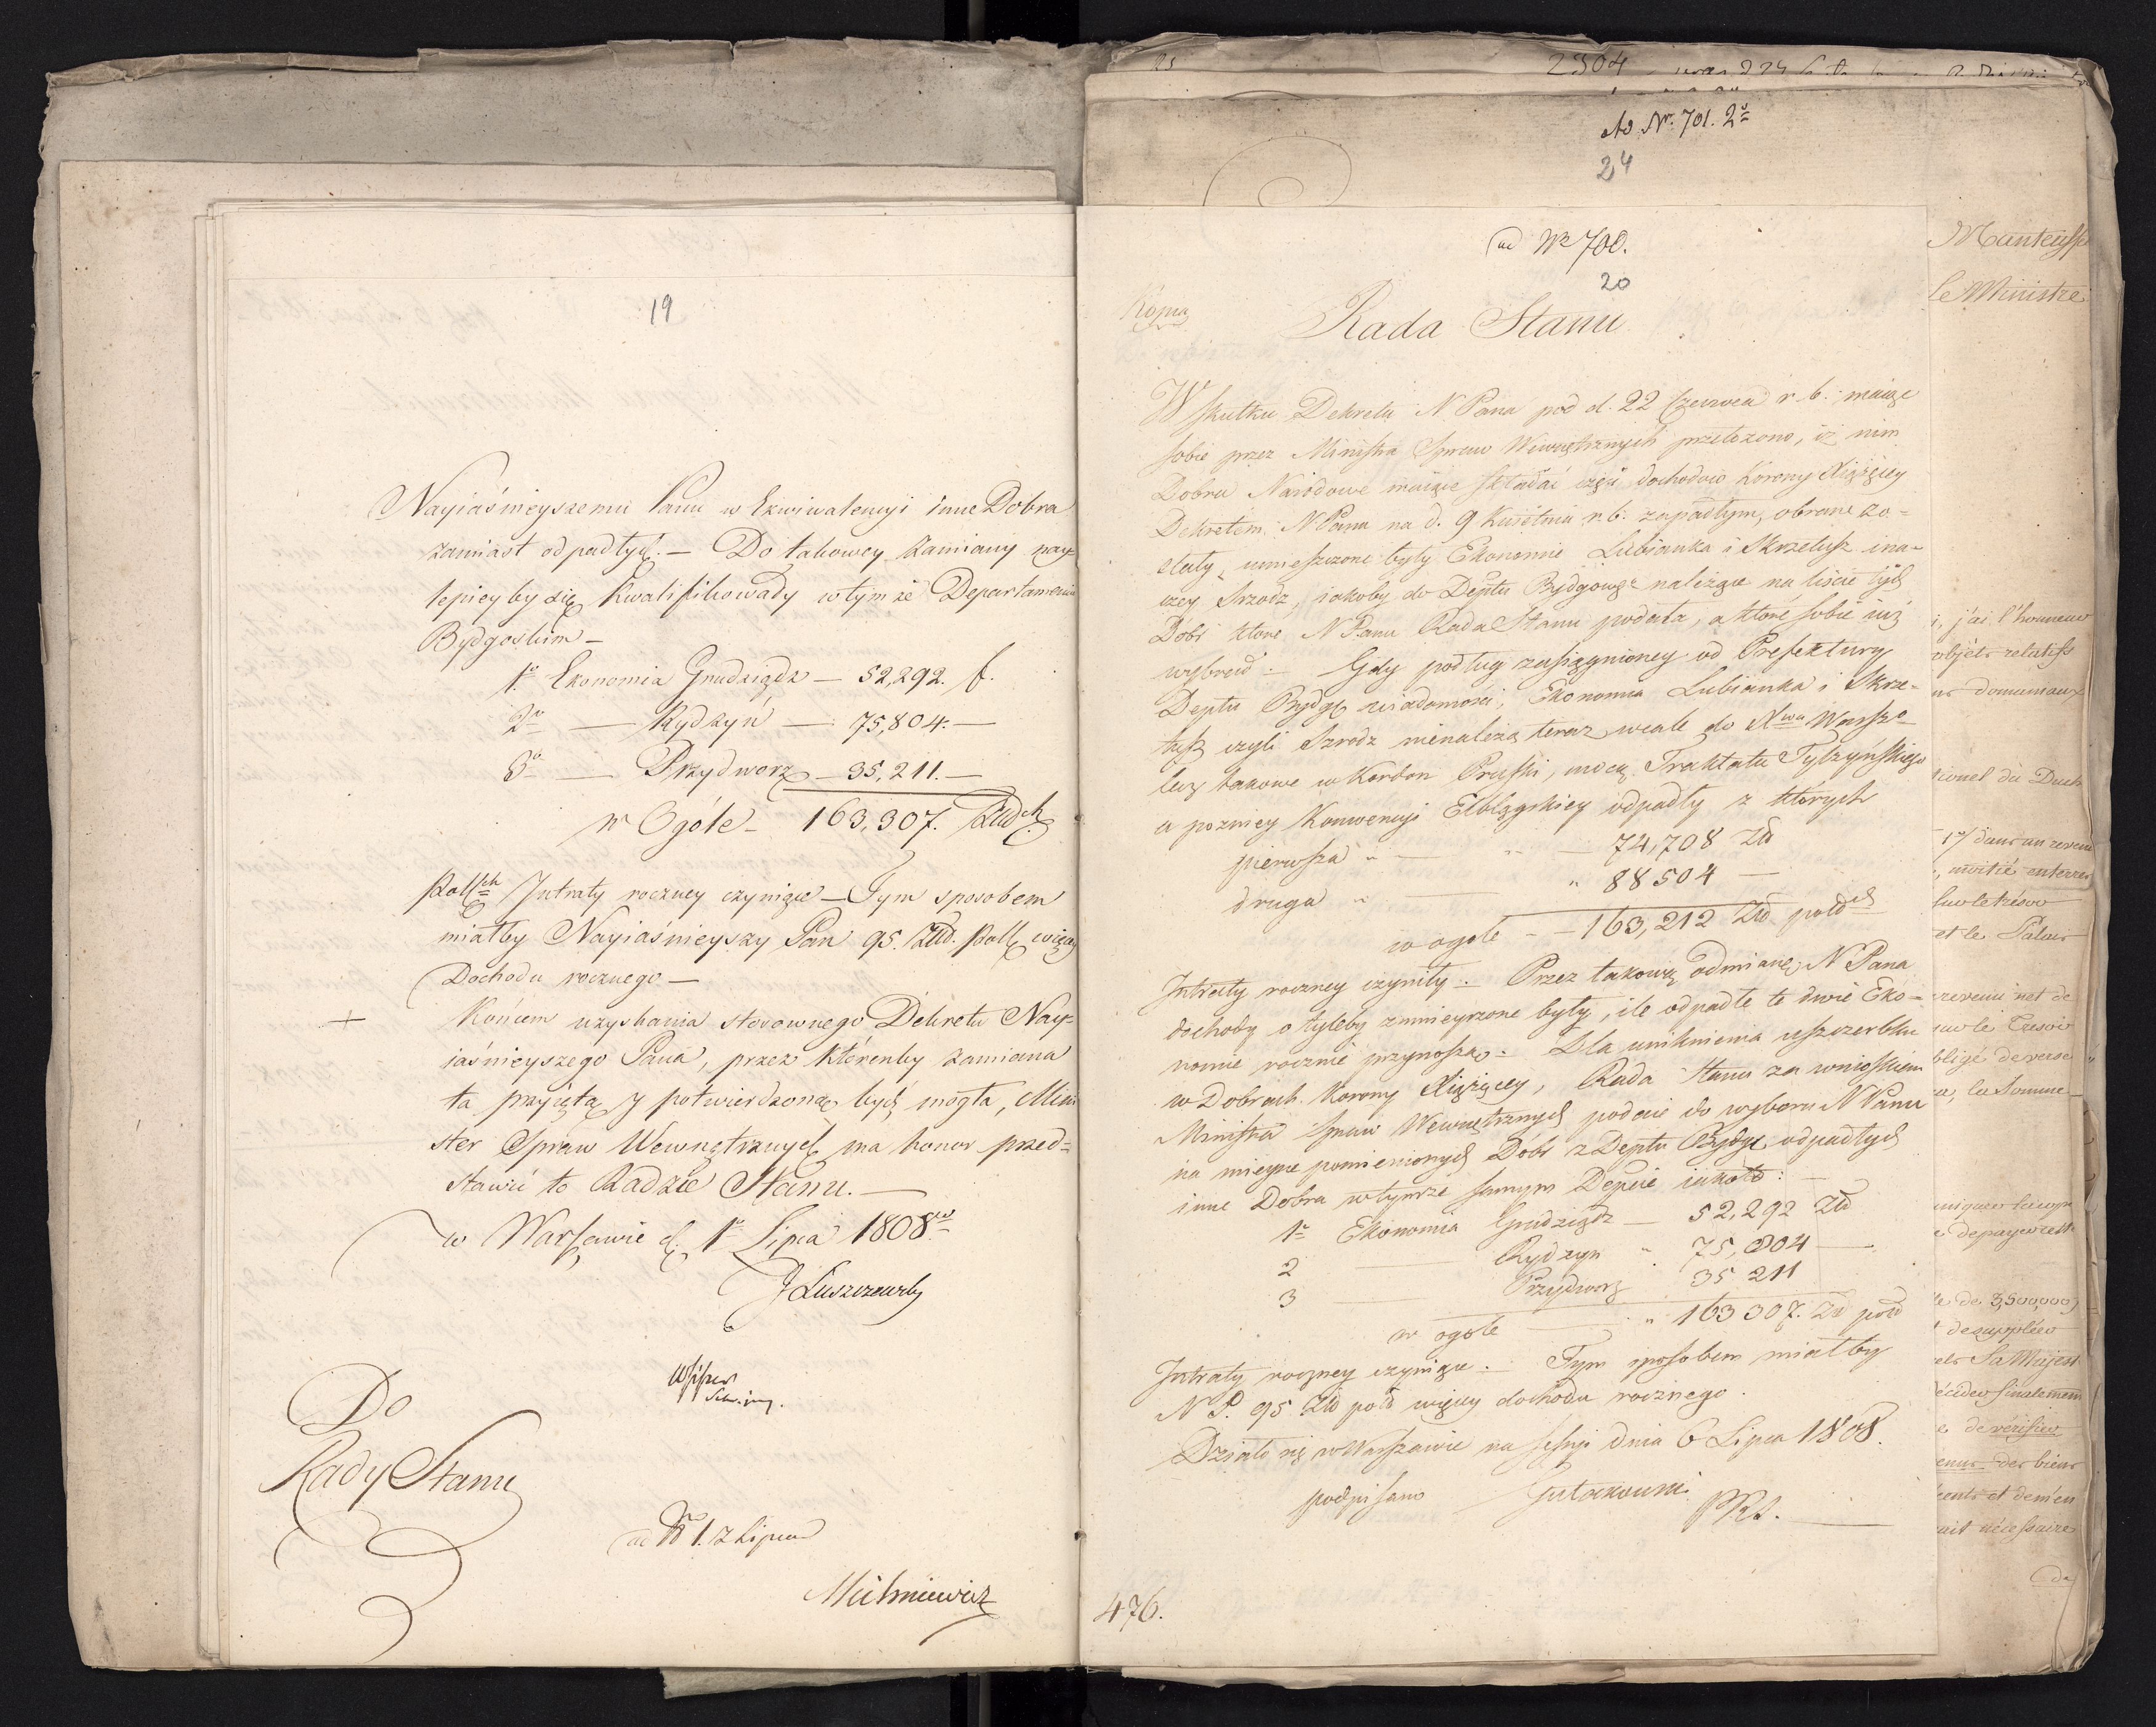 19
Nayiaśnieyszemu Panu w Ekwiwalencyi inne Dobra
zamiast odpadłych. — Do takowey zamiany nay=
lepiey by się kwalifikowały w tymże Departamencie
Bydgoskim —
1o Ekonomia Grudziądz — 52,292. f.
2o — Rydzyń — 75,804. —
3o — Przydworz — 35,211. —
w Ogóle — 163,307. Złłch
Polskch Intraty roczney czyniące — Tym sposobem
miałby Nayiaśnieyszy Pan 95. Złł. Poll więcey
Dochodu rocznego —
+ Końcem uzyskania stosownego Dekretu Nay=
iaśnieyszego Pana, przez którenby zamiana
ta przyiętą y potwierdzoną bydź mogła, Mini
ster Spraw Wewnętrznych ma honor przed=
stawić to Radzie Stanu. —
w Warszawie d. 1o Lipca 1808o
J Łuszczewsky
Do
Rady Stanu
ad No 1. z Lipca
25
2304
Ad Nr. 701. 2o
24
ad No 700.
20
Kopia
Rada Stanu
W skutku Dekretu N Pana pod d. 22 Czerwca r. b. maiąc
sobie przez Ministra Spraw Wewnętrznych przełożono, iż nim
Dobra Narodowe maiące składać część dochodów Korony Xiążęcey
Dekretem N Pana na d. 9 Kwietnia r. b. zapadłym, obrane zo=
stały, umieszczone były Ekonomie Lubianka i Skrzetusz ina=
czey Srzodz, iakoby do Deptu Bydgowgo należące na liście tych
Dobr które N Panu Rada Stanu podała, a które sobie iuż
wybrał. — Gdy podług zasiągnioney od Prefektury
Deptu Bydg wiadomości, Ekonomia Lubianka i Skrze=
tusz czyli Szrodz nienależą teraz wcale do Xwa Warszo
lecz takowe w Kordon Pruski, mocą Traktatu Tylzyńskiego
a pozniey Konwencyi Elblągskiey odpadły z których
pierwsza " — " — 74,708 Zł
druga " — " 88504 —
w ogole - - 163,212 Zł polsch
Intraty roczney czyniły. — Przez takową odmianę N Pana
dochody o tyleby zmnieyszone były, ile odpadłe te dwie Eko=
nomie rocznie przynoszą. — Dla uniknienia uszczerbku
w Dobrach Korony Xiążęcey, Rada Stanu za wnioskiem
Ministra Spraw Wewnętrznych podaie do wyboru N Panu
na mieysce pomienionych Dobr z Deptu Bydg odpadłych
inne Dobra w tymże samym Depcie iakoto: —
1o Ekonomia Grudziądz — 52,292 Zł
2 — Rydzyn " 75,804 —
3 — Przydworz 35 211
w ogole — " 163 307. Zł pols
Intraty roczney czyniące. — Tym sposobem miałby
N P. 95 Zł pols więcey dochodu rocznego.
Działo się w Warszawie na sessyi dnia 6 Lipca 1808.
podpisano Gutakowski
PRS. —
476.
Manteuffel
le Ministre
j'ai l'honneur
objets relatifs
domaniaux
tionel du Duch
17/ dans un revenu
, moitié enterres
sur le trésor
et le Palais
revenu net de
sur le Tresor
bligé de verser
la Somme
de payer cette
de 3,500,000
de suppléer
Sa Majest
décider finalement
de vérifier
des biens
et d'en
ait nécessaire
de